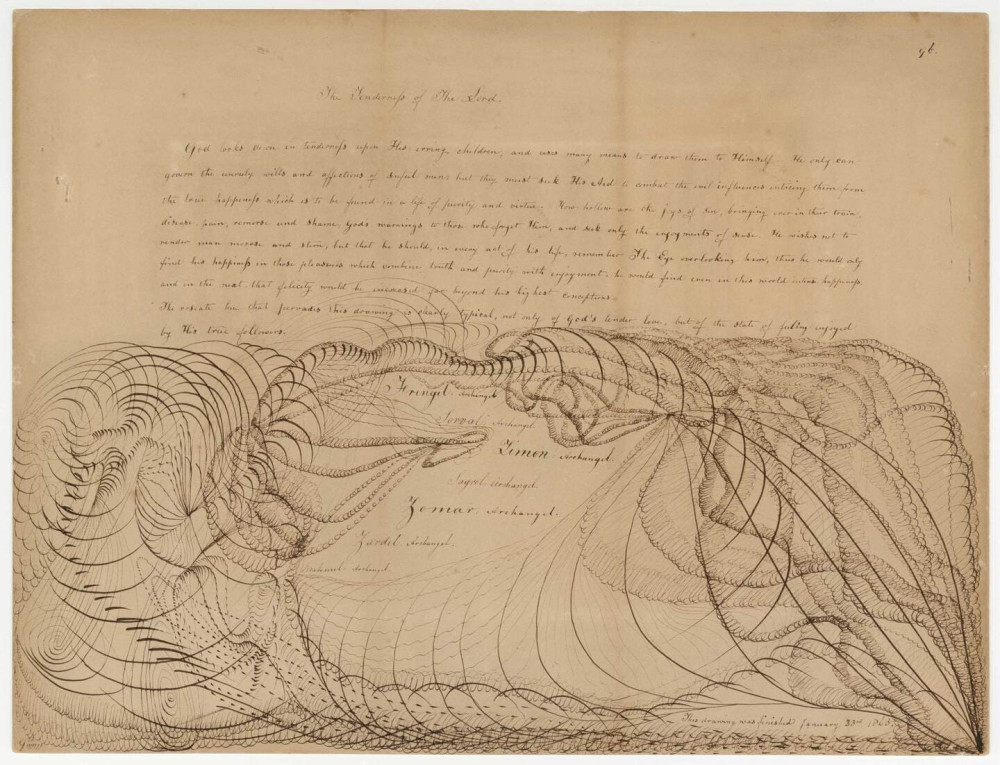 96
The Tenderness of The Lord.
God looks down in tenderness upon His erring children, and uses many means to draw them to Himself. He only can
govern the unruly wills and affections of sinful man; but they must seek His Aid to combat the evil influences enticing them from
the true happiness which is to be found in a life of purity and virtue. How hollow are the joys of sin, bringing ever in their train,
disease, pain, remorse and shame God's warnings to those who forget Him, and seek only the enjoyments of sense. He wishes not to
render man morose and stern, but that he should, in every act of his life, remember The Eye overlooking him, thus he would only
find his happiness in those pleasures which combine truth and purity with enjoyment. he would find even in this world happiness,
and in the next, that felicity would be increased far beyond his highest conceptions.
The hue that pervades this drawing is clearly typical, not only of God's tender love, but of the state of feeling enjoyed
by His true followers.
Archangel
Archangel
Zimon Archangel.
Archangel
Zomar. Archangel.
Archangel.
Archangel.
This drawing was finished January 23rd